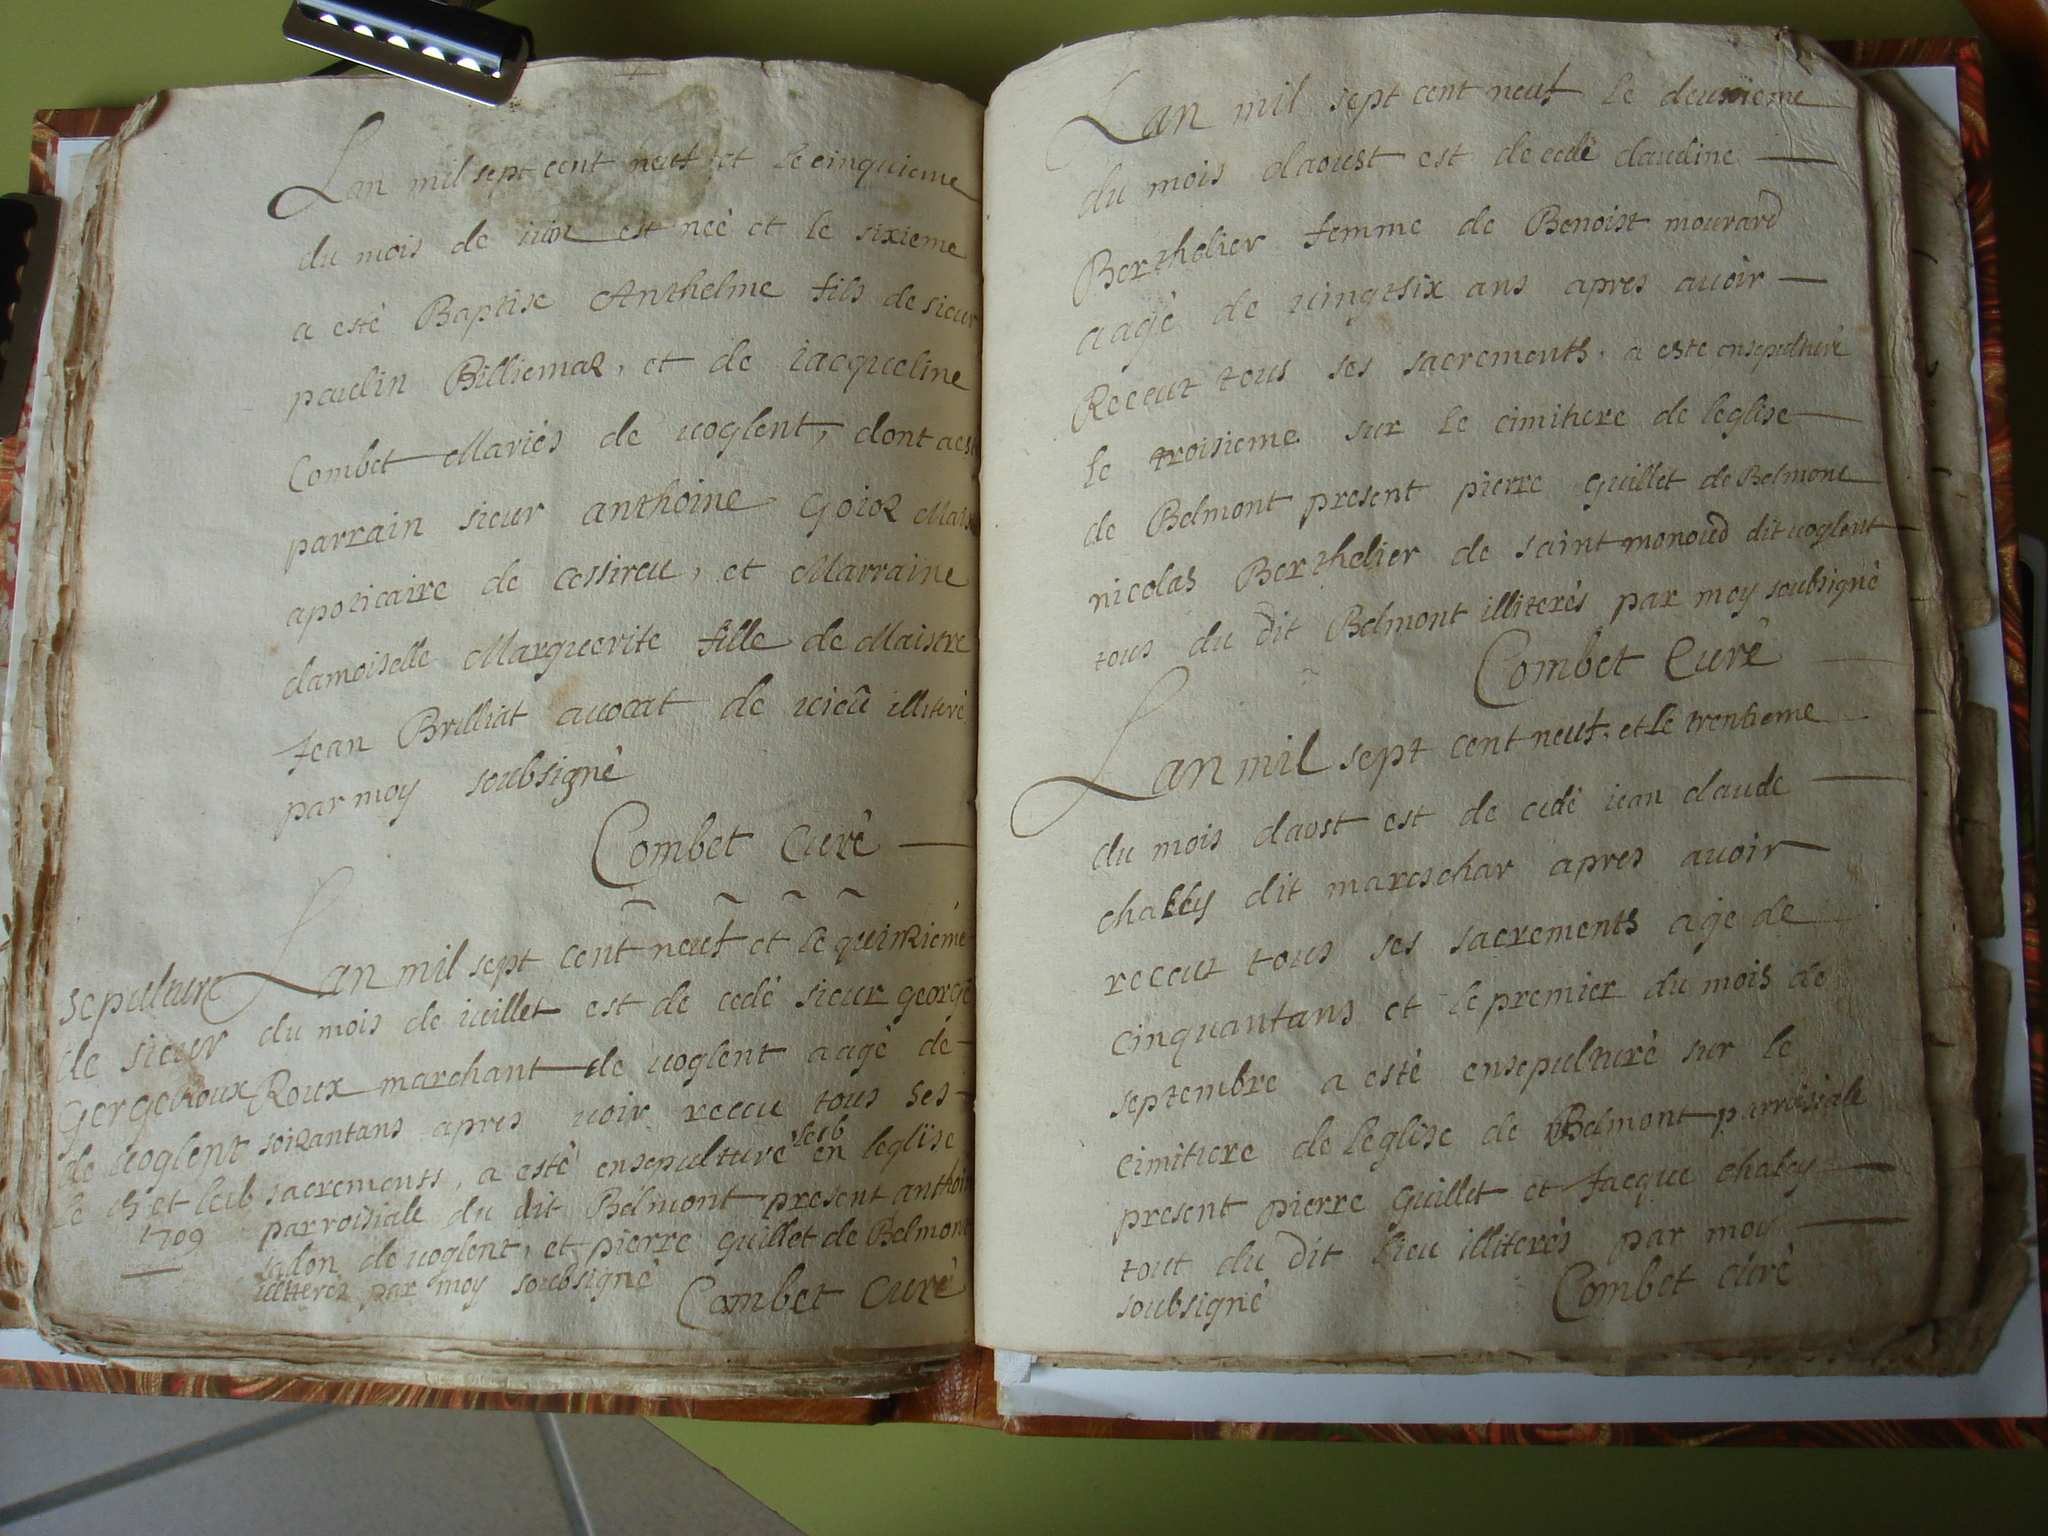 Lan mil sept cent neuf et le cinquieme
du mois de iuin est neè et le sixieme
a estè Baptise Anthelme fils de sieur
paulin Billiemaz, et de iacqueline
Combet Mariés de uoglent, dont a est
parrain sieur anthoine Goioz Mais
apoticaire de cessireu, et Marraine
damoiselle Marguerite fille de Maistre
Jean Brilliat auocat de uieû illiterè
par moy soubsignè
Combet Curè
Lan mil sept cent neuf et le quinzieme
du mois de iuillet est de cedè sieur george
Roux marchant de uoglent aagè de
soixantans apres uoir receu tous ses
sacrements, a estè ensepulturè le 16 en leglise
parroisiale du dit Belmont present anthoin
de uoglent, et pierre Guillet de Belmont
illiterés par moy soubsignè
Combet Curè
sepulture
de sieur
George Roux
de uoglent
le 15 et le 16
1709
Lan mil sept cent neuf le deuxieme
du mois daoust est de cedè claudine
Berthelier femme de Benoist mourard
aagè de uingtsix ans apres auoir
Receut tous ses sacrements, a este ensepulturè
le troisieme sur le cimitiere de leglise
de Belmont present pierre Guillet de Belmont
nicolas Berthelier de saint monoud dit uoglent
tous du dit Belmont illiterés par moy soubsignè
Combet Curè
Lan mil sept cent neuf, et le trentieme
du mois daost est de cedè iean claude
chabby dit mareschar apres auoir
receut tous ses sacrements age de
cinquantans et le premier du mois de
septembre a estè ensepulturè sur le
cimitiere de leglise de Belmont parroisiale
present pierre Guillet et Jacque chabey
tout du dit lieu illiterés par moy
soubsignè
Combet curè